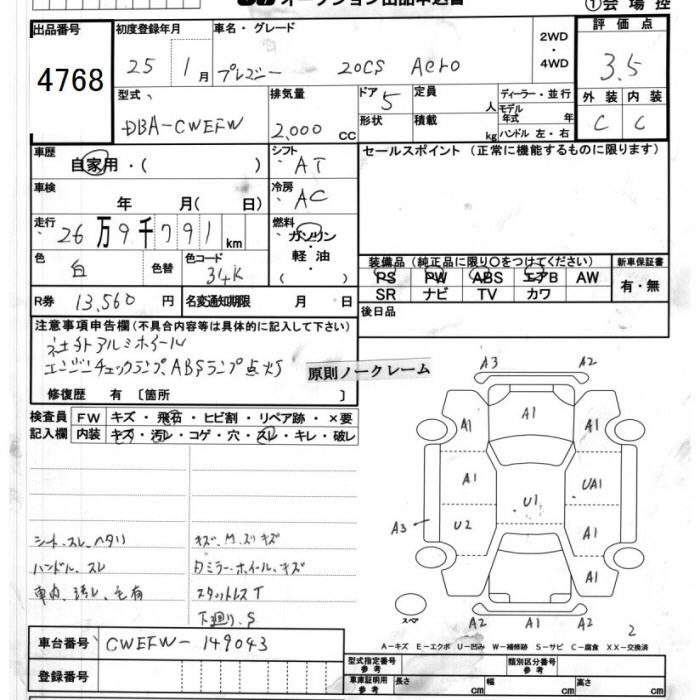 オークション出品申込書
①会場控
出品番号
4768
初度登録年月
25 1月
車名・グレード
プレマシー 20CS Aero
2WD
・
4WD
評価点
3.5
外装 内装
C C
型式
DBA-CWEFW
排気量
2,000 cc
ドア 5
形状
定員 人
積載 kg
ディーラー・並行
モデル年式 年
ハンドル 左・右
車歴
自家用・( )
シフト
AT
セールスポイント (正常に機能するものに限ります)
車検
年 月( 日)
冷房
AC
走行
26万9千791km
燃料
ガソリン
・
軽油
( )
色
白
色替
色コード
34K
装備品 (純正品に限り○をつけてください)
PS PW ABS エアB AW
SR ナビ TV カワ
新車保証書
有・無
R券 13,560 円
名変通知期限 月 日
後日品
注意事項申告欄 (不具合内容等は具体的に記入して下さい)
社外アルミホイール
エンジンチェックランプ、ABSランプ点灯
原則ノークレーム
修復歴 有 〔箇所 〕
検査員記入欄
FW キズ・飛石・ヒビ割・リペア跡・×要
内装 キズ・汚レ・コゲ・穴・スレ・キレ・破レ
シート、スレ、ヘタリ
ハンドル、スレ
車内、汚レ、毛有
キズ、M、スリキズ
タミラー、ホイール、キズ
スタットレスT
下廻り、S
A3 A2
A1 A1 A1
A1 U1 UA1
A3 U2 A1
A1
スペア
A2 A1 A2
2
A-キズ E-エクボ U-凹み W-補修跡 S-サビ C-腐食 XX-交換済
車台番号 CWEFW-149043
登録番号
型式指定番号 参考
類別区分番号 参考
車庫証明用 参考 長さ cm 幅 cm 高さ cm